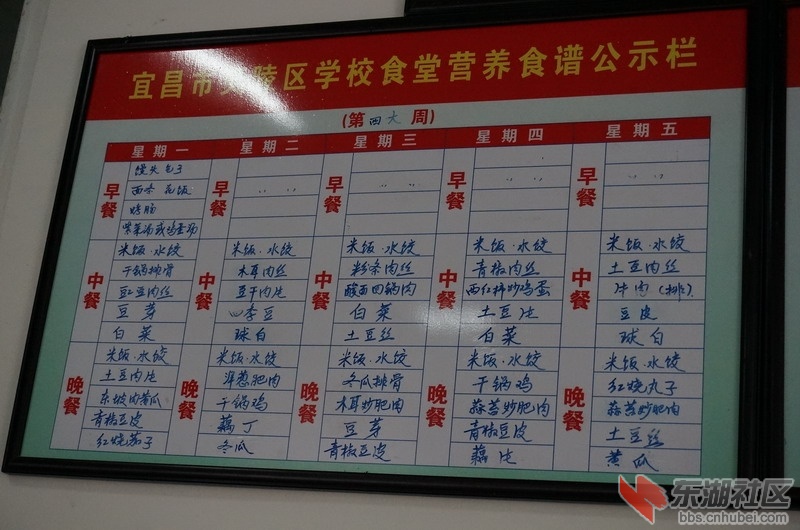 宜昌市夷陵区学校食堂营养食谱公示栏
(第 四 周)
星期一 星期二 星期三 星期四 星期五
早餐 早餐 早餐 早餐 早餐
馒头 包子
烤肠
中餐 中餐 中餐 中餐 中餐
米饭·水饺 米饭·水饺 米饭·水饺 米饭·水饺 米饭·水饺
干锅排骨 木耳肉丝 粉条肉丝 青椒肉丝 土豆肉丝
豇豆肉丝 豆干肉片 回锅肉 西红柿炒鸡蛋 牛肉(排)
豆芽 季豆 白菜 土豆片 豆皮
白菜 球白 土豆丝 白菜 球白
晚餐 晚餐 晚餐 晚餐 晚餐
米饭·水饺 米饭·水饺 米饭·水饺 米饭·水饺 米饭·水饺
土豆肉片 洋葱肥肉 冬瓜排骨 干锅鸡 红烧丸子
东坡肉黄瓜 干锅鸡 木耳炒肥肉 蒜苔炒肥肉 蒜苔炒肥肉
青椒豆皮 藕丁 豆芽 青椒豆皮 土豆丝
红烧茄子 冬瓜 青椒豆皮 藕片 黄瓜
东湖社区
bbs.cnhubei.com